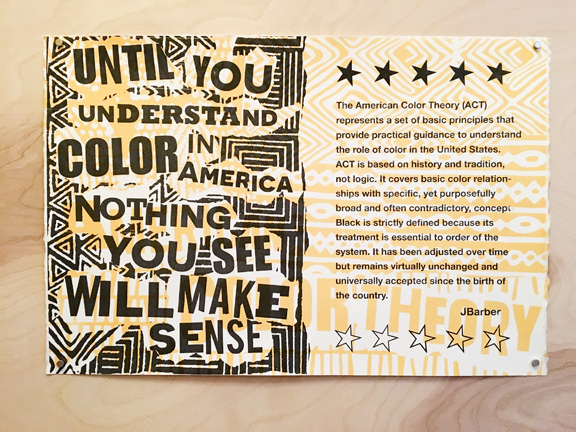 UNTIL YOU
UNDERSTAND
COLOR IN
AMERICA
NOTHING
YOU SEE
WILL MAKE
SENSE
The American Color Theory (ACT)
represents a set of basic principles that
provide practical guidance to understand
the role of color in the United States.
ACT is based on history and tradition,
not logic. It covers basic color relation-
ships with specific, yet purposefully
broad and often contradictory, concept
Black is strictly defined because its
treatment is essential to order of the
system. It has been adjusted over time
but remains virtually unchanged and
universally accepted since the birth of
the country.
JBarber
OR THEORY